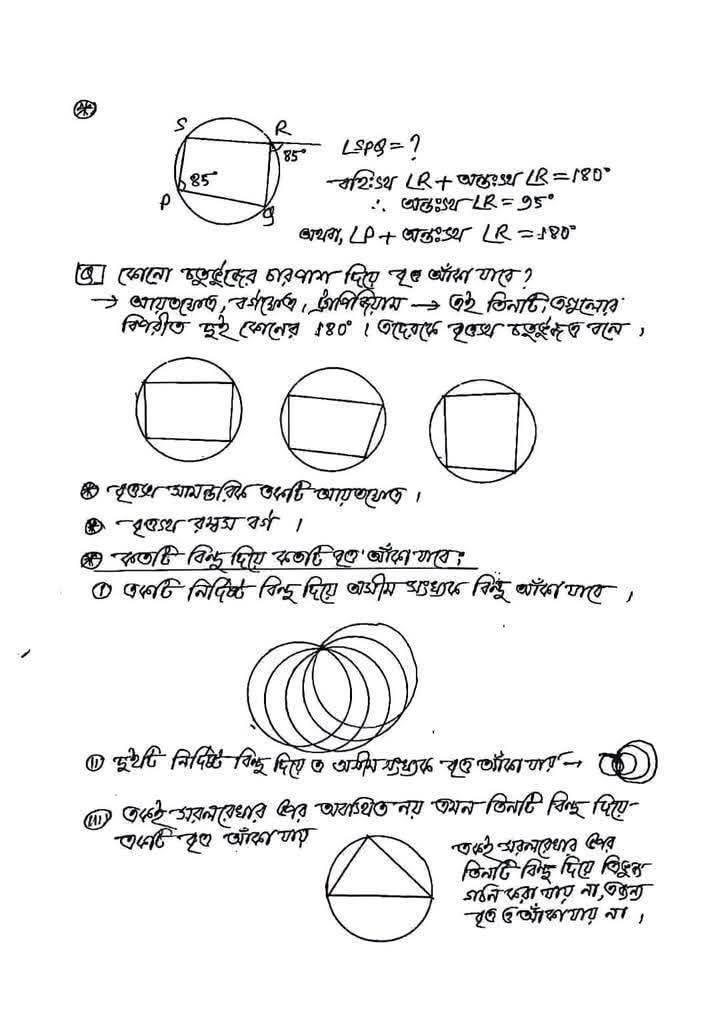 S R
85° ∠SPQ = ?
85° বহিঃস্থ ∠R + অন্তঃস্থ ∠R = 180°
P Q ∴ অন্তঃস্থ ∠R = 95°
অথবা, ∠P + অন্তঃস্থ ∠R = 180°
Q কোনো চতুর্ভুজের চারপাশ দিয়ে বৃত্ত আঁকা যাবে?
→ আয়তক্ষেত্র, বর্গক্ষেত্র, ট্রাপিজিয়াম → এই তিনটি, এগুলোর
বিপরীত দুই কোনের 180°। এদেরকে বৃত্তস্থ চতুর্ভুজও বলে।
বৃত্তস্থ সামন্তরিক একটি আয়তক্ষেত্র।
বৃত্তস্থ রম্বস বর্গ।
কতটি বিন্দু দিয়ে কতটি বৃত্ত আঁকা যাবে:
(i) একটি নির্দিষ্ট বিন্দু দিয়ে অসীম সংখ্যক বিন্দু আঁকা যাবে।
(ii) দুইটি নির্দিষ্ট বিন্দু দিয়ে ও অসীম সংখ্যক বৃত্ত আঁকা যায় →
(iii) একই সরলরেখার উপর অবস্থিত নয় এমন তিনটি বিন্দু দিয়ে
একটি বৃত্ত আঁকা যায়
একই সরলরেখার উপর
তিনটি বিন্দু দিয়ে ত্রিভুজ
গঠন করা যায় না, এজন্য
বৃত্ত ও আঁকা যায় না।